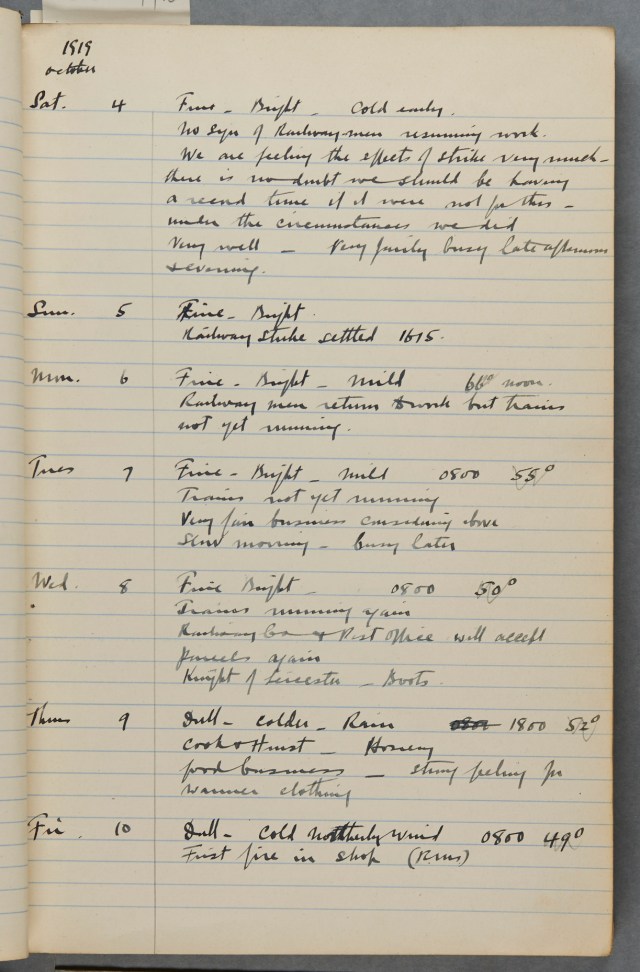 1919
October
Sat. 4 Fine - Bright - Cold early.
No sign of Railway men resuming work.
We are feeling the effects of strike very much -
there is no doubt we should be having
a record time if it were not for this -
under the circumstances we did
very well - Very fairly busy late afternoon
& evening.
Sun. 5 Fine - Bright.
Railway strike settled 1615.
Mon. 6 Fine - Bright - Mild 66° noon.
Railway men return to work but trains
not yet running.
Tues 7 Fine - Bright - Mild 0800 55°
Trains not yet running
Very fair business considering above
Slow morning - busy later
Wed. 8 Fine Bright - 0800 50°
Trains running again
Railway Co & Post Office will accept
parcels again
Knight of Leicester - Boots.
Thurs 9 Dull - Colder - Rain 1800 52°
Cook & Hurst - Hosiery
good business - strong feeling for
warmer clothing
Fri. 10 Dull - Cold Northerly Wind 0800 49°
First fire in shop